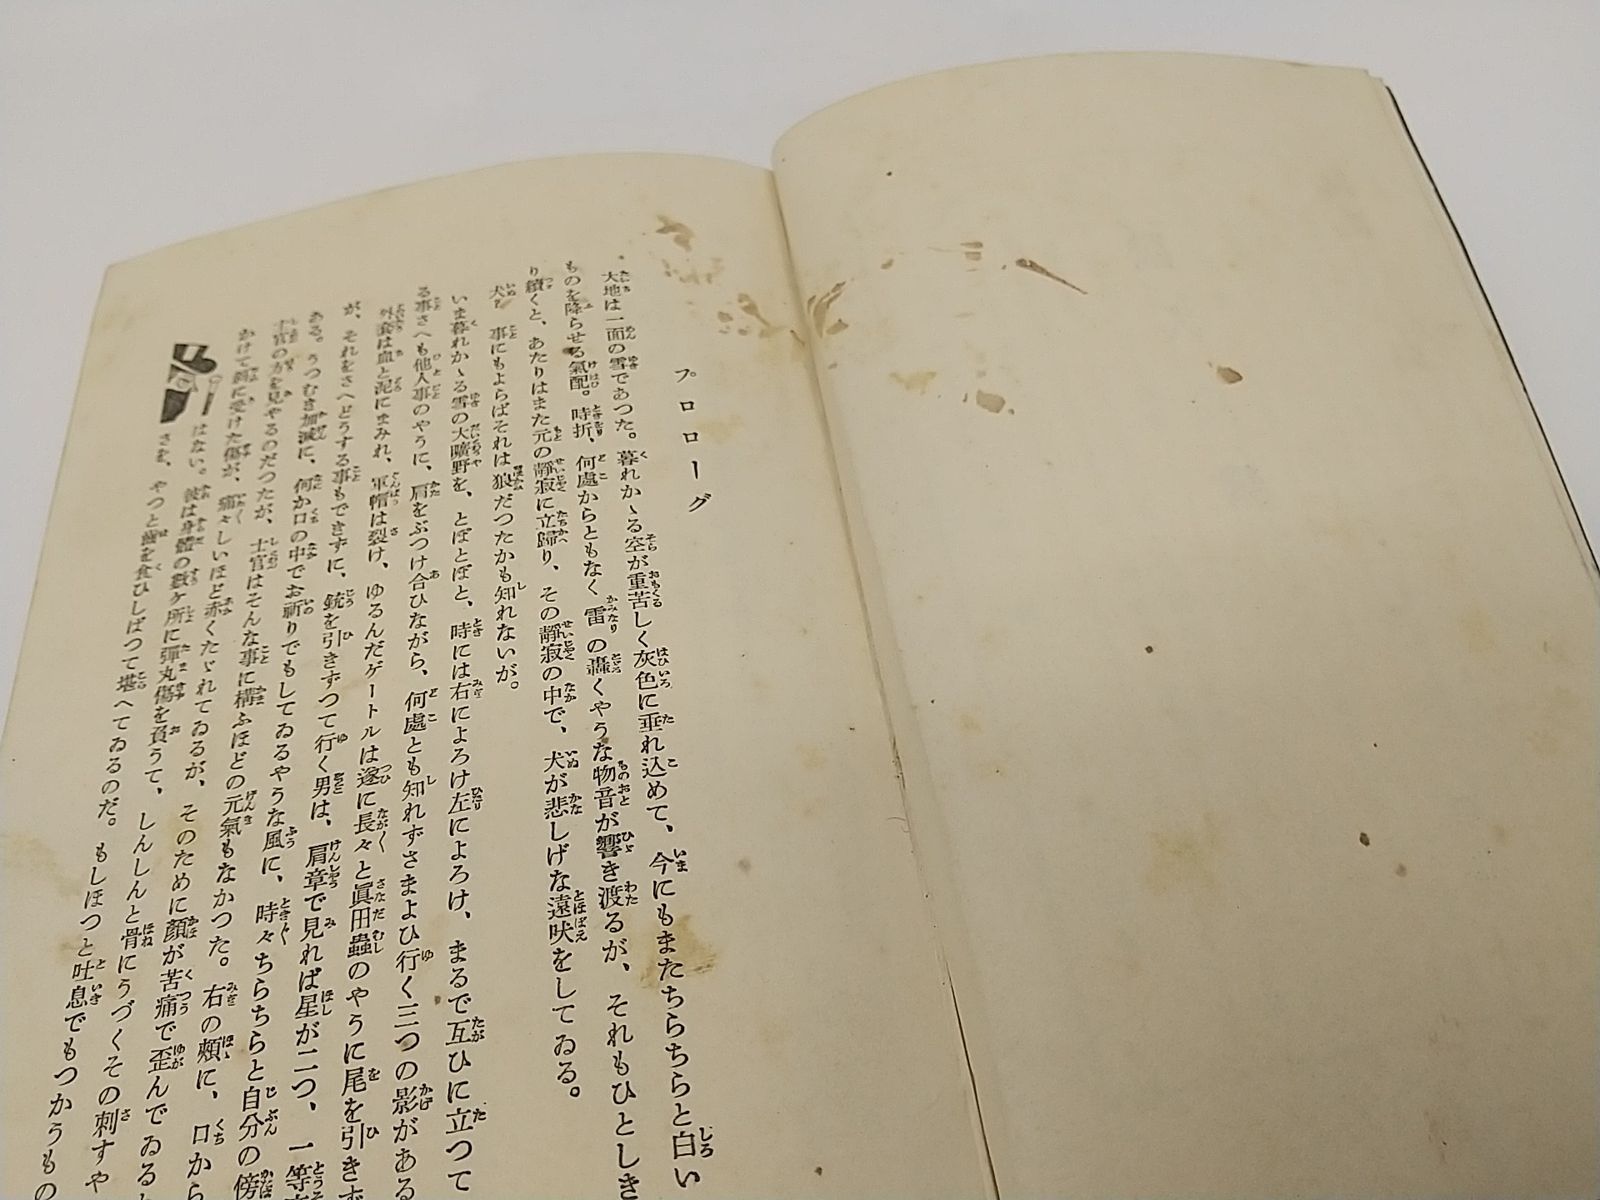 プロローグ
大地は一面の雪であつた。暮れかゝる空が重苦しく灰色に垂れ込めて、今にもまたちらちらと白い
ものを降らせる氣配。時折、何處からともなく雷の轟くやうな物音が響き渡るが、それもひとしき
り續くと、あたりはまた元の靜寂に立歸り、その靜寂の中で、犬が悲しげな遠吠をしてゐる。
犬？ 事にもよらばそれは狼だつたかも知れないが。
いま暮れかゝる雪の大曠野を、とぼとぼと、時には右によろけ左によろけ、まるで互ひに立つて
る事さへも他人事のやうに、肩をぶつけ合ひながら、何處とも知れずさまよひ行く三つの影がある
外套は血と泥にまみれ、軍帽は裂け、ゆるんだゲートルは遂に長々と眞田蟲のやうに尾を引きず
が、それをさへどうする事もできずに、銃を引きずつて行く男は、肩章で見れば星が二つ、一等
ある。うつむき加減に、何か口の中でお祈りでもしてゐるやうな風に、時々ちらちらと自分の傍
士官の方を見やるのだつたが、士官はそんな事に構ふほどの元氣もなかつた。右の頬に、口から
かけて斜に受けた傷が、痛々しいほど赤くたゞれてゐるが、そのために顏が苦痛で歪んでゐる
はない。彼は身體の數ケ所に彈丸傷を負うて、しんしんと骨にうづくその刺すや
さを、やつと齒を食ひしばつて堪へてゐるのだ。もしほつと吐息でもつかうもの